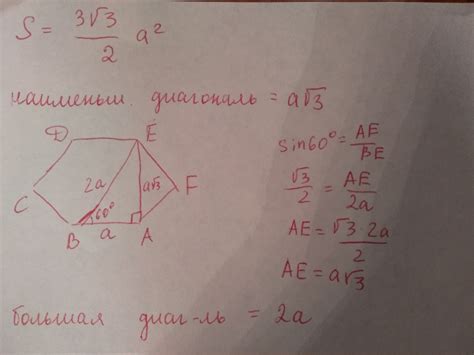 S = 3√3/2 a²
наименьш. диагональ = a√3
D E
2a a√3
C F
60°
B a A
sin60° = AE/BE
√3/2 = AE/2a
AE = √3·2a/2
AE = a√3
большая диаг-ль = 2a